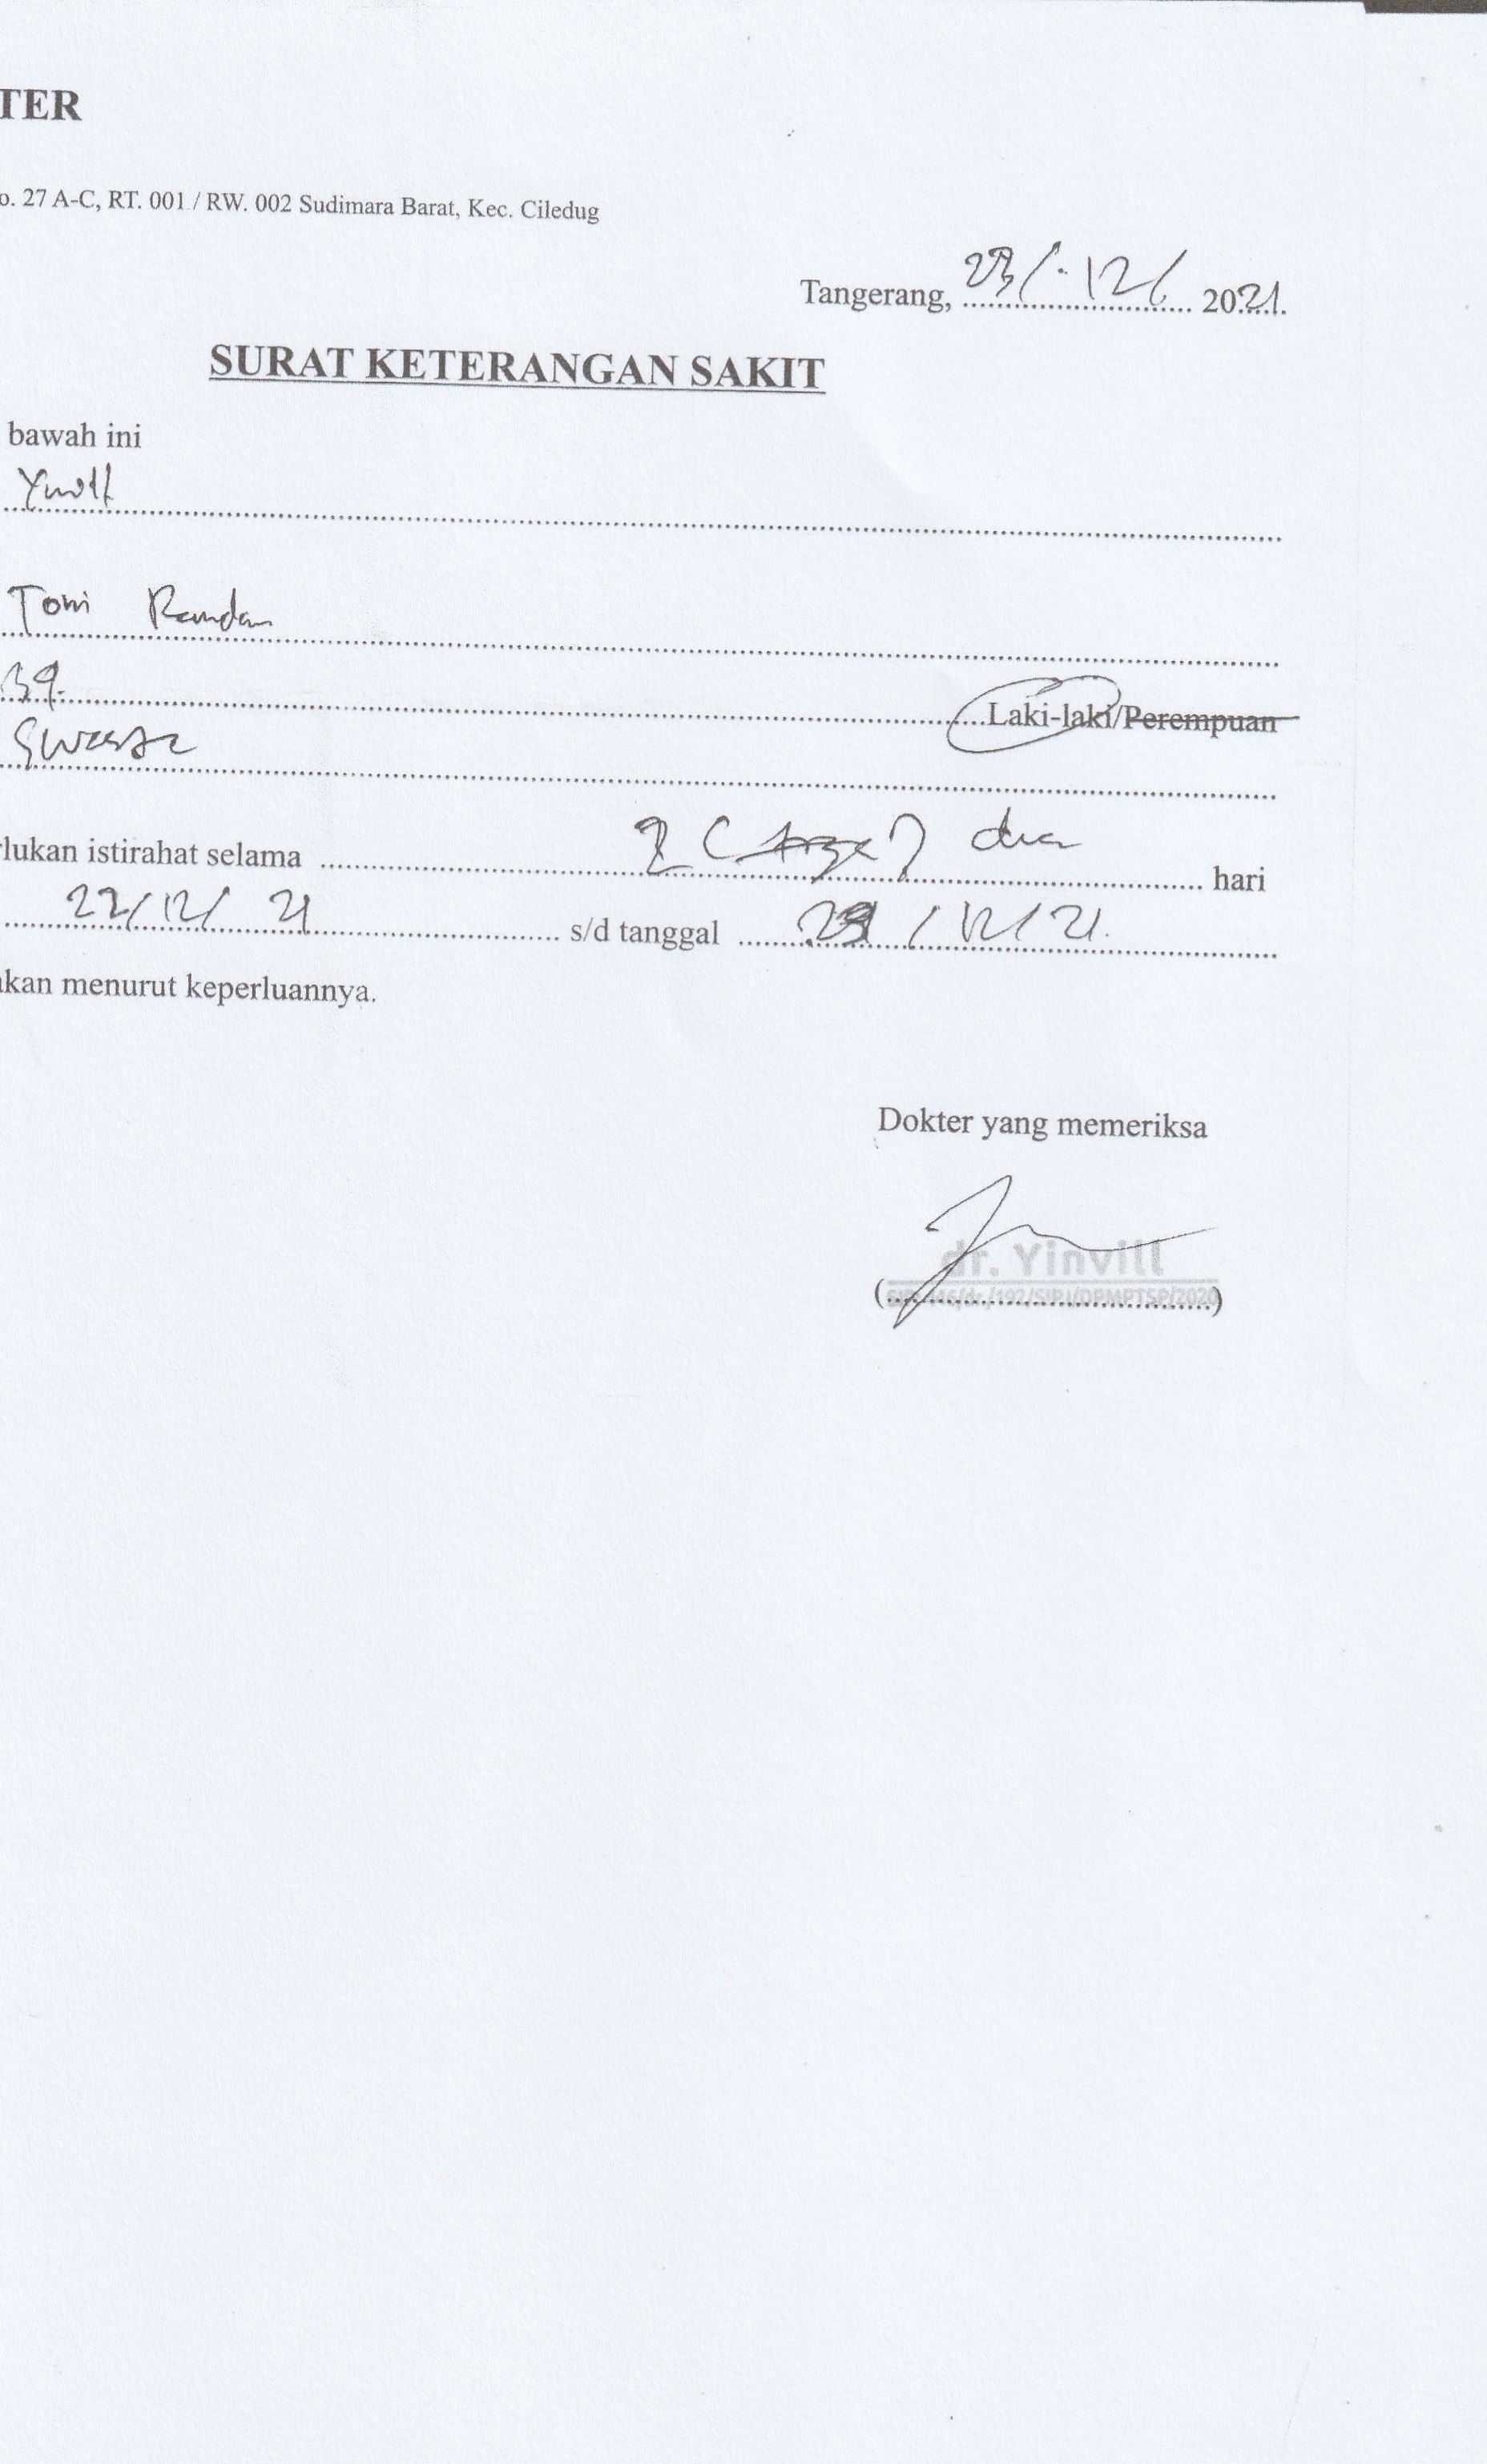 TER
o. 27 A-C, RT. 001 / RW. 002 Sudimara Barat, Kec. Ciledug
Tangerang, 23/12/ 2021.
SURAT KETERANGAN SAKIT
bawah ini
Toni Ramdan
39.
Laki-laki/Perempuan
Swasta
rlukan istirahat selama 2 (tiga) dua hari
22/12/ 21 s/d tanggal 23 / 12 / 21.
akan menurut keperluannya.
Dokter yang memeriksa
dr. Yinvill
(/dr./192/SIP.I/DPMPTSP/2020)